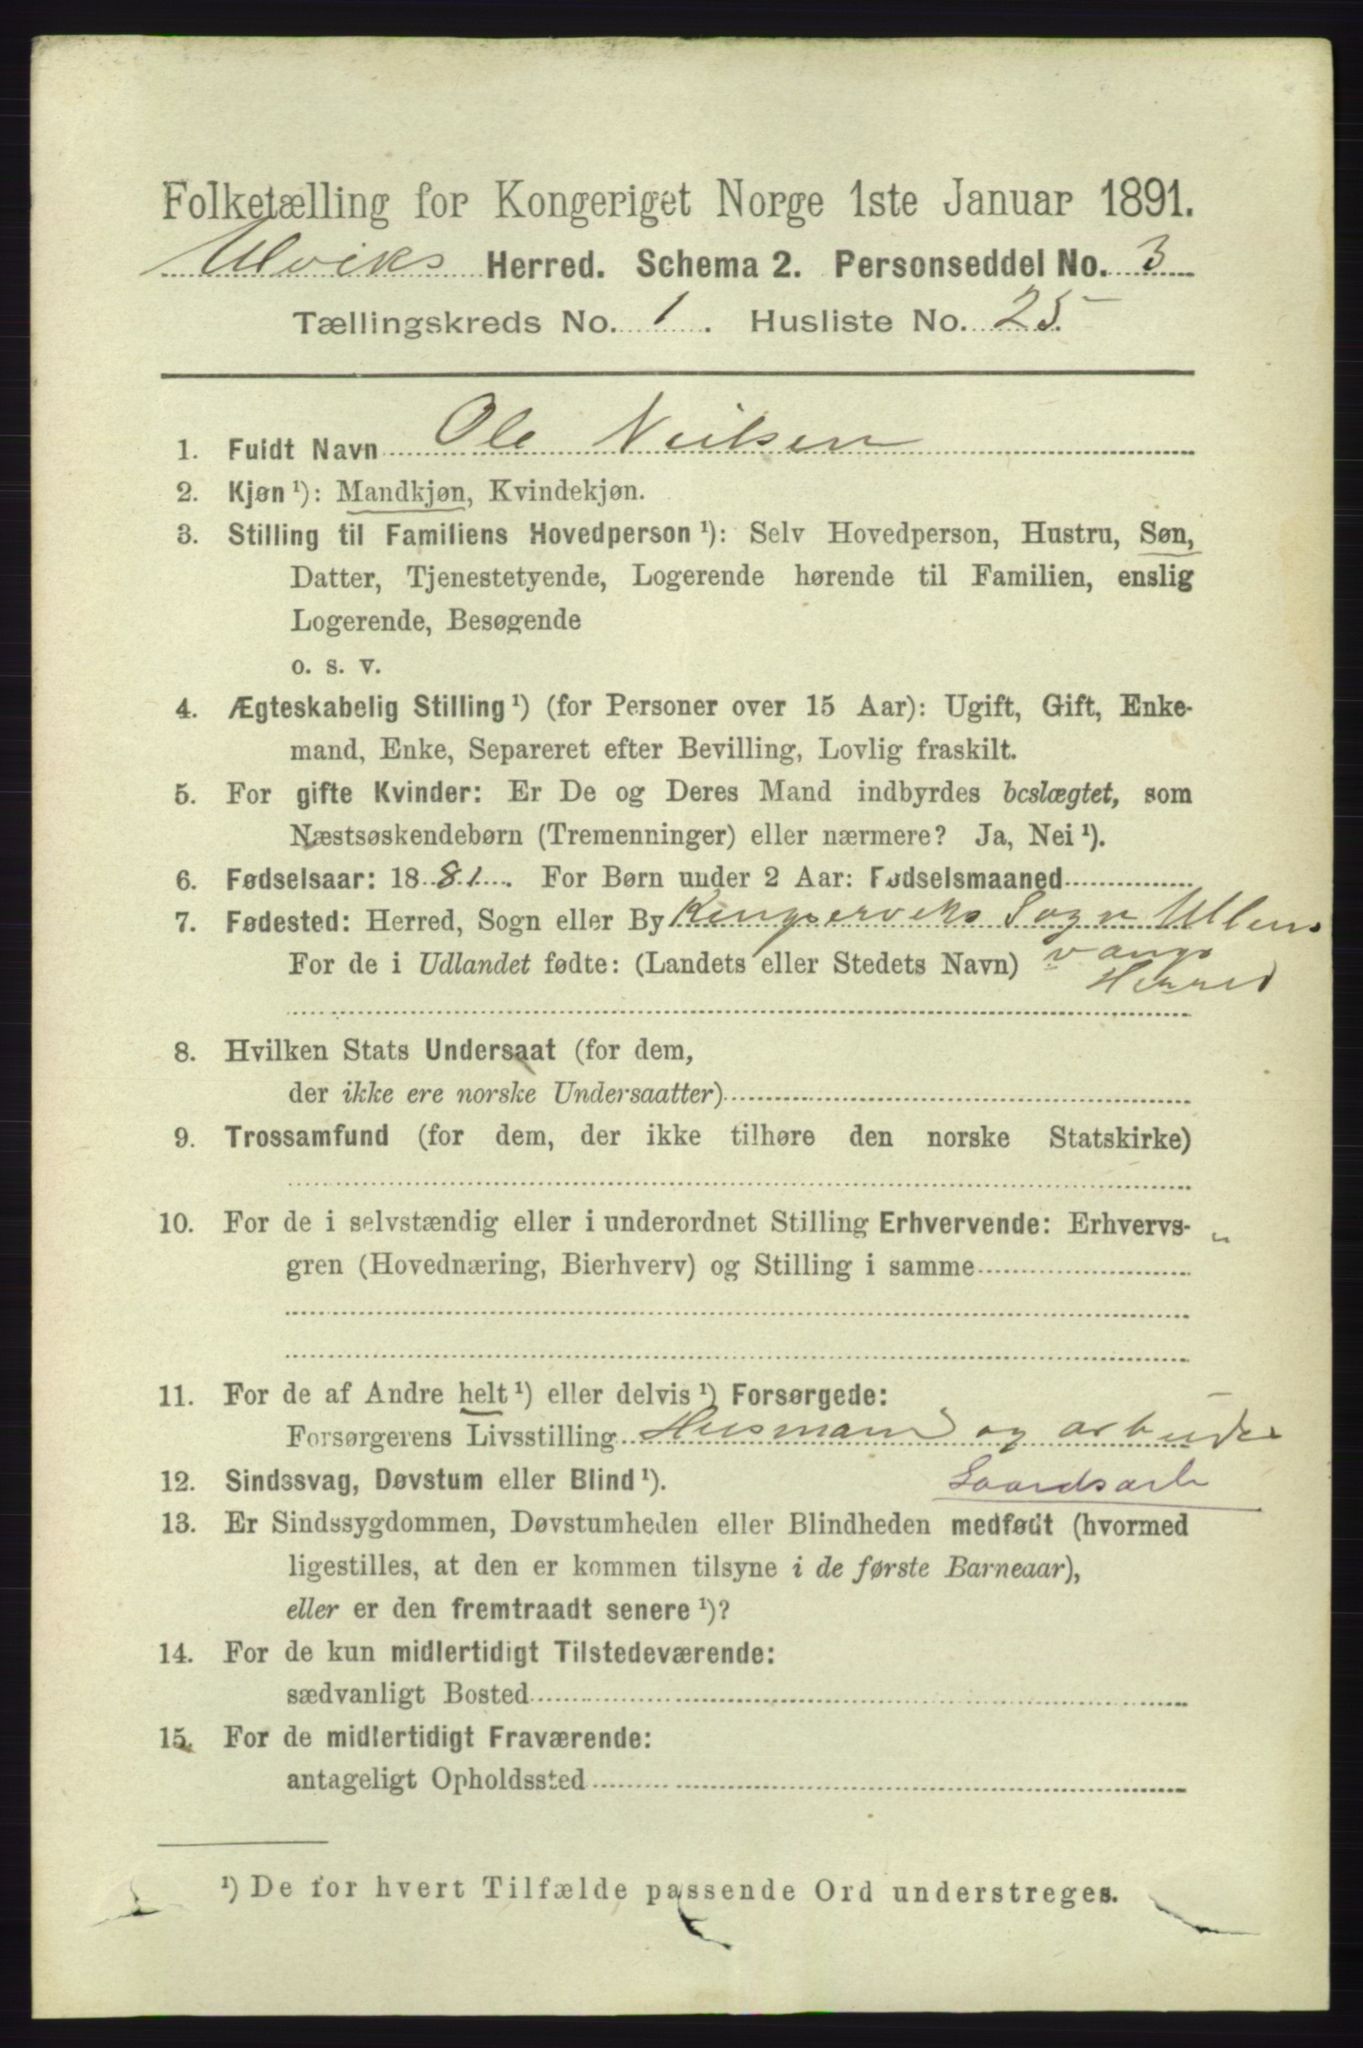 Folketælling for Kongeriget Norge 1ste Januar 1891.
Ulviks Herred. Schema 2. Personseddel No. 3
Tællingskreds No. 1. Husliste No. 25.
1. Fuldt Navn Ole Neilsen
2. Kjøn ¹): Mandkjøn, Kvindekjøn.
3. Stilling til Familiens Hovedperson ¹): Selv Hovedperson, Hustru, Søn,
Datter, Tjenestetyende, Logerende hørende til Familien, enslig
Logerende, Besøgende
o. s. v.
4. Ægteskabelig Stilling ¹) (for Personer over 15 Aar): Ugift, Gift, Enke-
mand, Enke, Separeret efter Bevilling, Lovlig fraskilt.
5. For gifte Kvinder: Er De og Deres Mand indbyrdes beslægtet, som
Næstsøskendebørn (Tremenninger) eller nærmere? Ja, Nei ¹).
6. Fødselsaar: 1881. For Børn under 2 Aar: Fødselsmaaned
7. Fødested: Herred, Sogn eller By Kingserviks Sogn Ullens
For de i Udlandet fødte: (Landets eller Stedets Navn) vangs
Herred
8. Hvilken Stats Undersaat (for dem,
der ikke ere norske Undersaatter)
9. Trossamfund (for dem, der ikke tilhøre den norske Statskirke)
10. For de i selvstændig eller i underordnet Stilling Erhvervende: Erhvervs- "
gren (Hovednæring, Bierhverv) og Stilling i samme
11. For de af Andre helt ¹) eller delvis ¹) Forsørgede:
Forsørgerens Livsstilling Husmand og arbeider
12. Sindssvag, Døvstum eller Blind ¹). Gaardsarb
13. Er Sindssygdommen, Døvstumheden eller Blindheden medfødt (hvormed
ligestilles, at den er kommen tilsyne i de første Barneaar),
eller er den fremtraadt senere ¹)?
14. For de kun midlertidigt Tilstedeværende:
sædvanligt Bosted
15. For de midlertidigt Fraværende:
antageligt Opholdssted
¹) De for hvert Tilfælde passende Ord understreges.